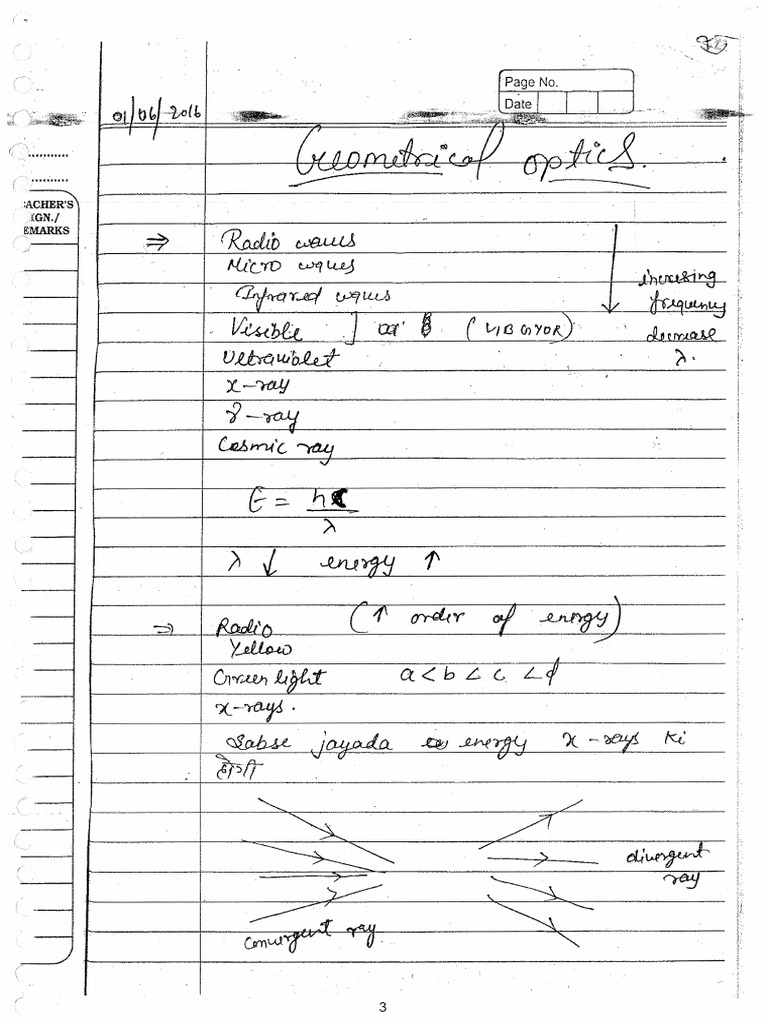 Page No.
Date
01/06/2016
Geometrical optics.
TEACHER'S
SIGN./
REMARKS
⇒ Radio waves
Micro waves
Infrared waves
Visible ] (VIBGYOR)
Ultraviolet
x-ray
γ-ray
Cosmic ray
increasing
frequency
decrease
λ.
E = hc
λ
λ ↓ energy ↑
⇒ Radio (↑ order of energy)
Yellow
Green light a < b < c < d
x-rays.
Sabse jayada energy x-rays ki
होगी
divergent
ray
convergent ray
3